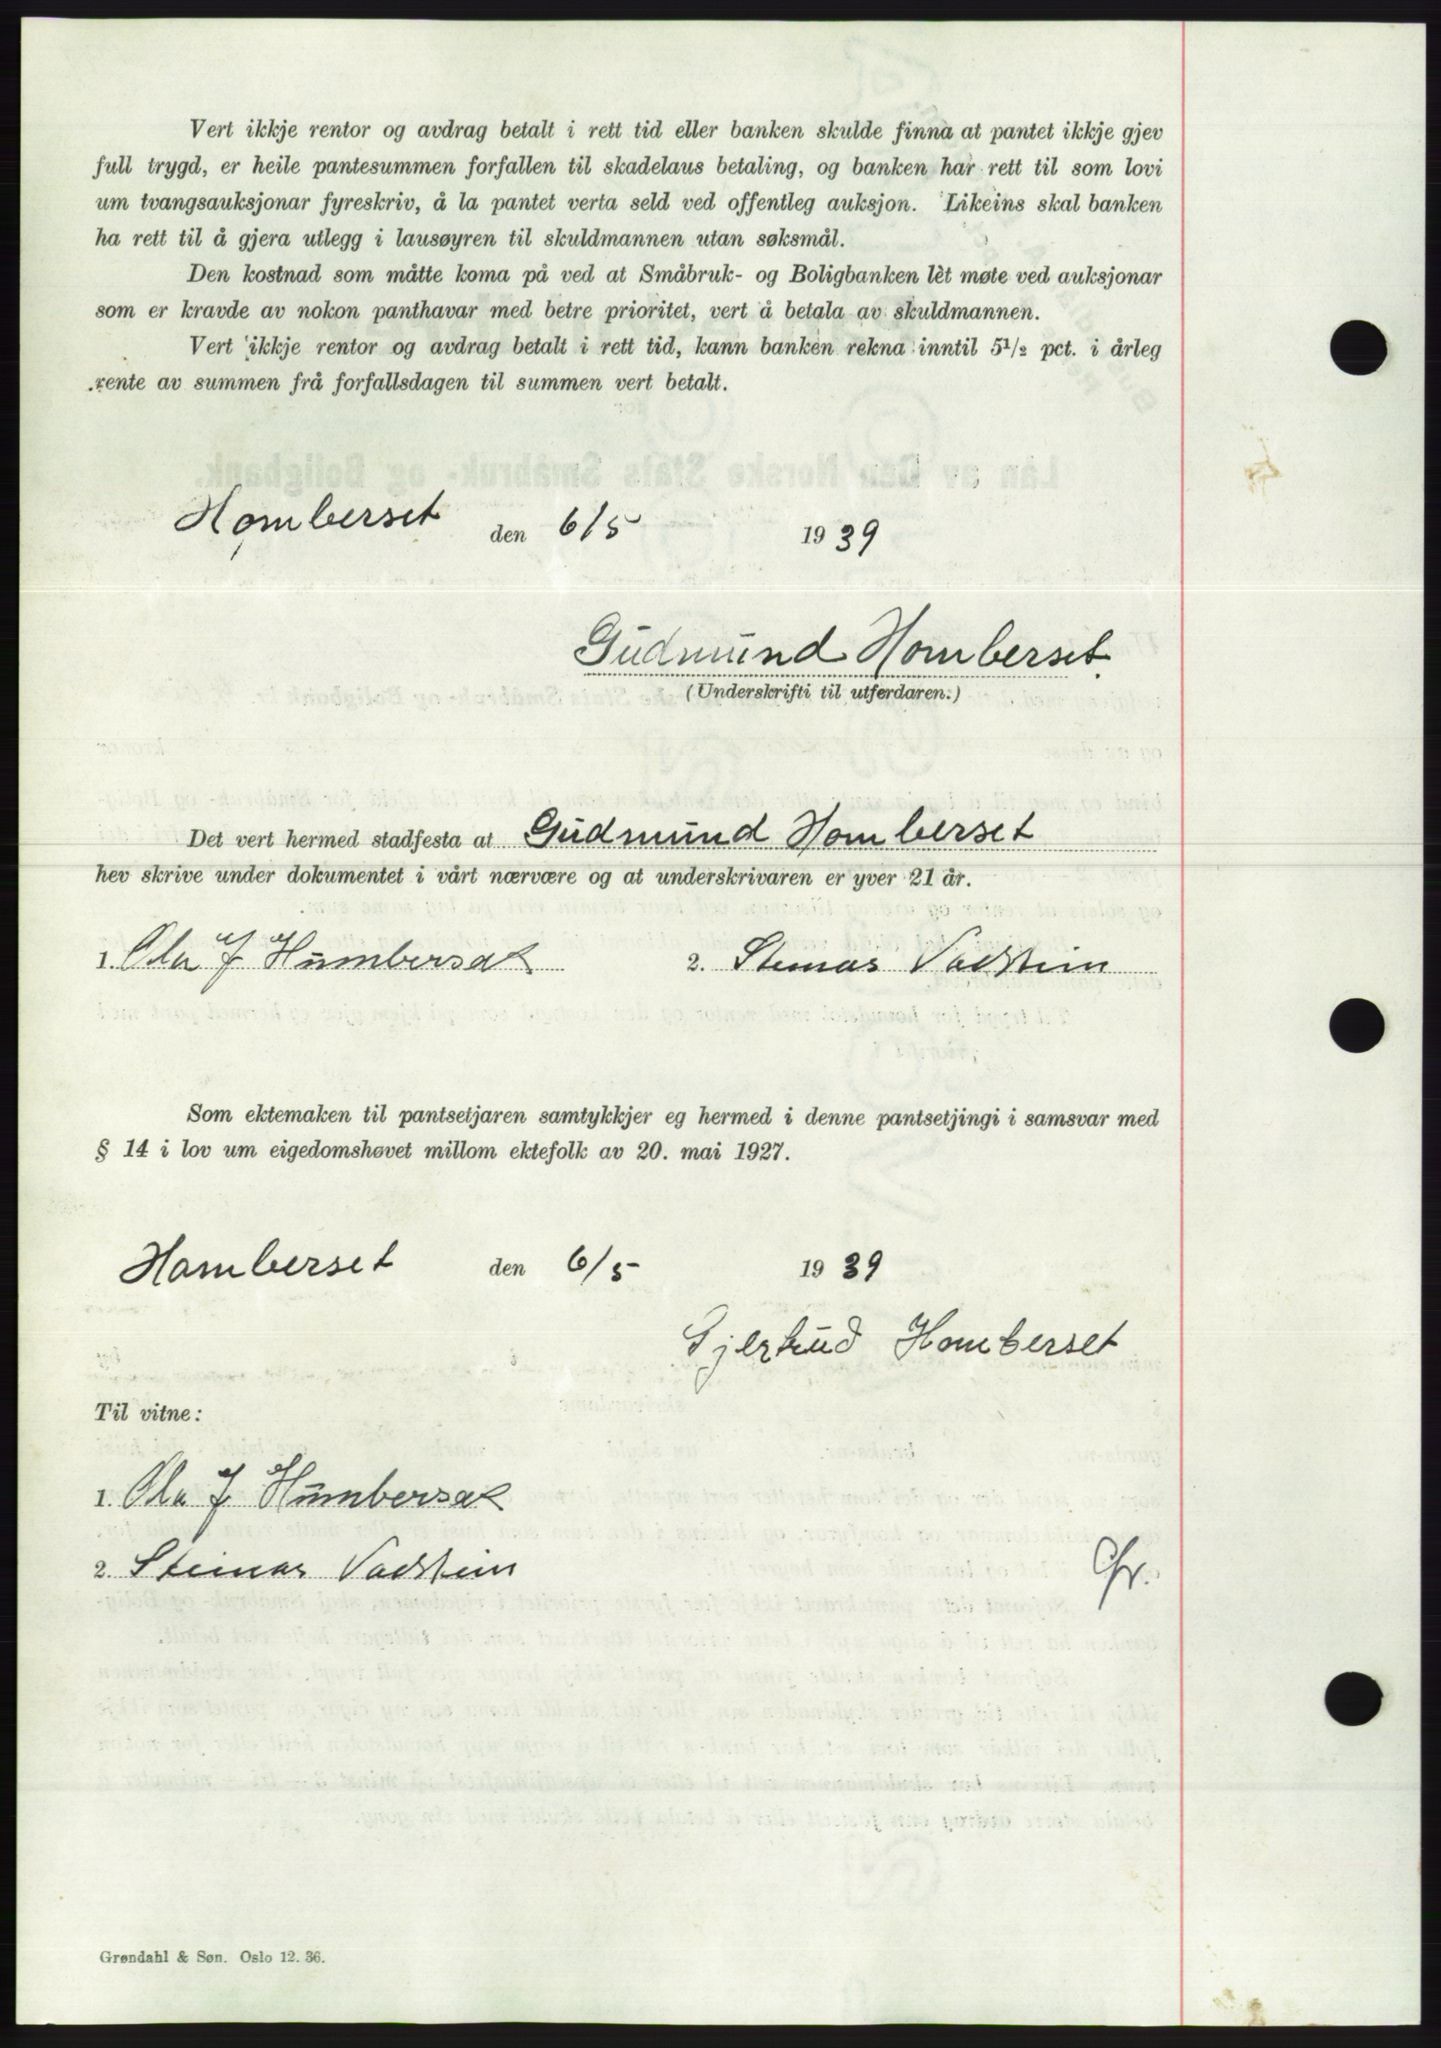 Vert ikkje rentor og avdrag betalt i rett tid eller banken skulde finna at pantet ikkje gjev
full trygd, er heile pantesummen forfallen til skadelaus betaling, og banken har rett til som lovi
um tvangsauksjonar fyreskriv, å la pantet verta seld ved offentleg auksjon. Likeins skal banken
ha rett til å gjera utlegg i lausøyren til skuldmannen utan søksmål.
Den kostnad som måtte koma på ved at Småbruk- og Boligbanken lèt møte ved auksjonar
som er kravde av nokon panthavar med betre prioritet, vert å betala av skuldmannen.
Vert ikkje rentor og avdrag betalt i rett tid, kann banken rekna inntil 5½ pct. i årleg
rente av summen frå forfallsdagen til summen vert betalt.
Homberset den 6/5 1939
Gudmund Homberset
(Underskrifti til utferdaren.)
Det vert hermed stadfesta at Gudmund Homberset
hev skrive under dokumentet i vårt nærvære og at underskrivaren er yver 21 år.
1. Ola J Humberset 2. Steinar Vadstein
Som ektemaken til pantsetjaren samtykkjer eg hermed i denne pantsetjingi i samsvar med
§ 14 i lov um eigedomshøvet millom ektefolk av 20. mai 1927.
Homberset den 6/5 1939
Gjertrud Homberset
Til vitne:
1. Ola J Humberset
2. Steinar Vadstein
Grøndahl & Søn. Oslo 12. 36.